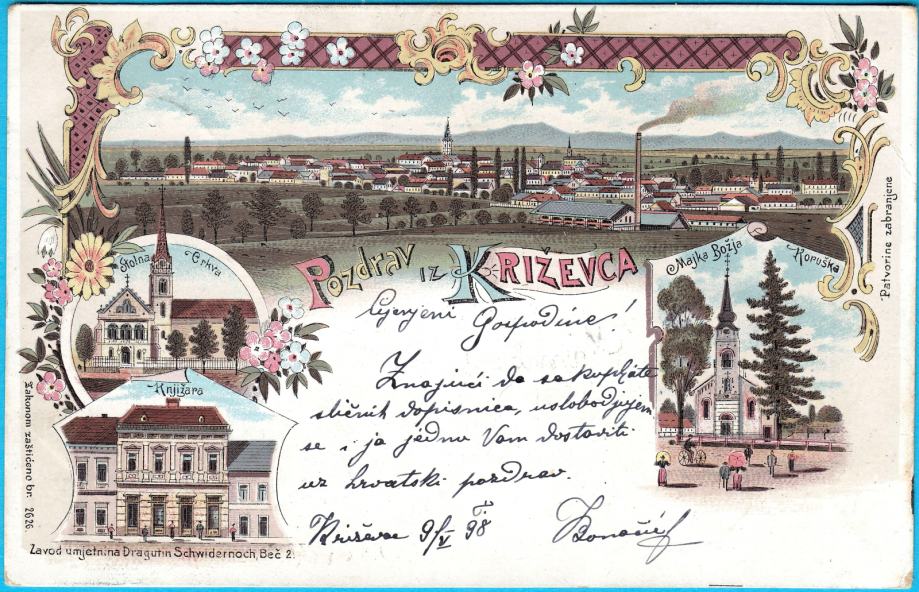 Pozdrav iz Križevca
Stolna Crkva
Majka Božja Koruška
Patvorine zabranjene
Cijenjeni Gospodine!
Znajući da sakupljate
sličnih dopisnica, uslobodjujem
se i ja jednu Vam dostaviti
uz hrvatski pozdrav.
Križevac 9/V 98
Knjižara
Zakonom zaštićeno br. 2626
Zavod umjetnina Dragutin Schwidernoch, Beč 2.